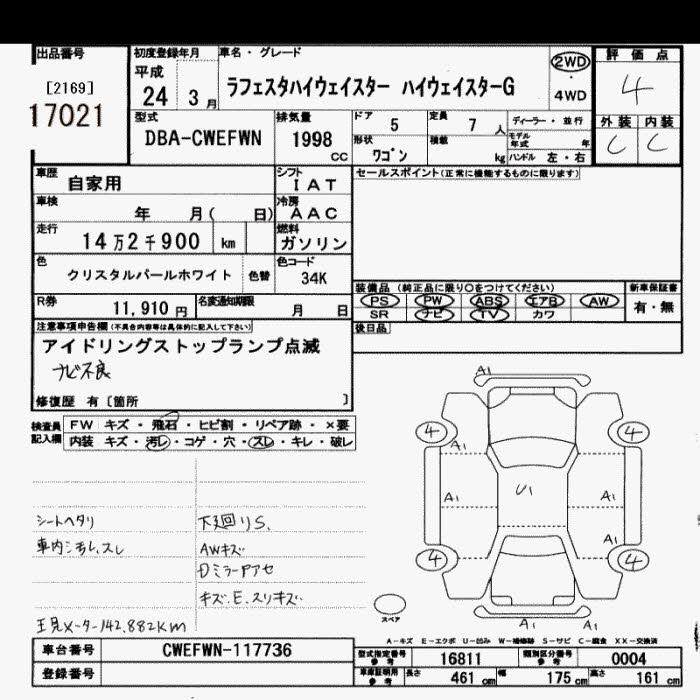 出品番号
[2169]
17021
初度登録年月
平成
24 3 月
車名・グレード
ラフェスタハイウェイスター ハイウェイスターG
2WD
4WD
評価点
4
外装 内装
C C
型式
DBA-CWEFWN
排気量
1998 CC
ドア
5
定員
7 人
形状
ワゴン
積載
kg
ディーラー・並行
モデル年式 年
ハンドル 左・右
車歴
自家用
シフト
IAT
車検
年 月( 日)
冷房
AAC
走行
14万2千900 km
燃料
ガソリン
色
クリスタルパールホワイト 色替
色コード
34K
R券
11,910 円
名変通知期限
月 日
セールスポイント(正常に機能するものに限ります)
装備品 (純正品に限り〇をつけてください)
PS PW ABS エアB AW
SR ナビ TV カワ
新車保証書
有・無
後日品
注意事項申告欄(不具合内容等は具体的に記入して下さい)
アイドリングストップランプ点滅
ナビ不良
修復歴 有〔箇所 〕
検査員記入欄
FW キズ・飛石・ヒビ割・リペア跡・×要
内装 キズ・汚レ・コゲ・穴・スレ・キレ・破レ
シートヘタリ
車内シミ汚レ.スレ
下廻りS.
AWキズ
DミラーPアセ
キズ.E.スリキズ.
現メーター142.882Km
A1
4 4
A1
A1 U1 A1
A1
4 4
A1 A1
スペア
A-キズ E-エクボ U-凹み W-補修跡 S-サビ C-腐食 XX-交換済
車台番号
CWEFWN-117736
登録番号
型式指定番号 参考 16811
類別区分番号 参考 0004
車庫証明用 参考 長さ 461 cm 幅 175 cm 高さ 161 cm